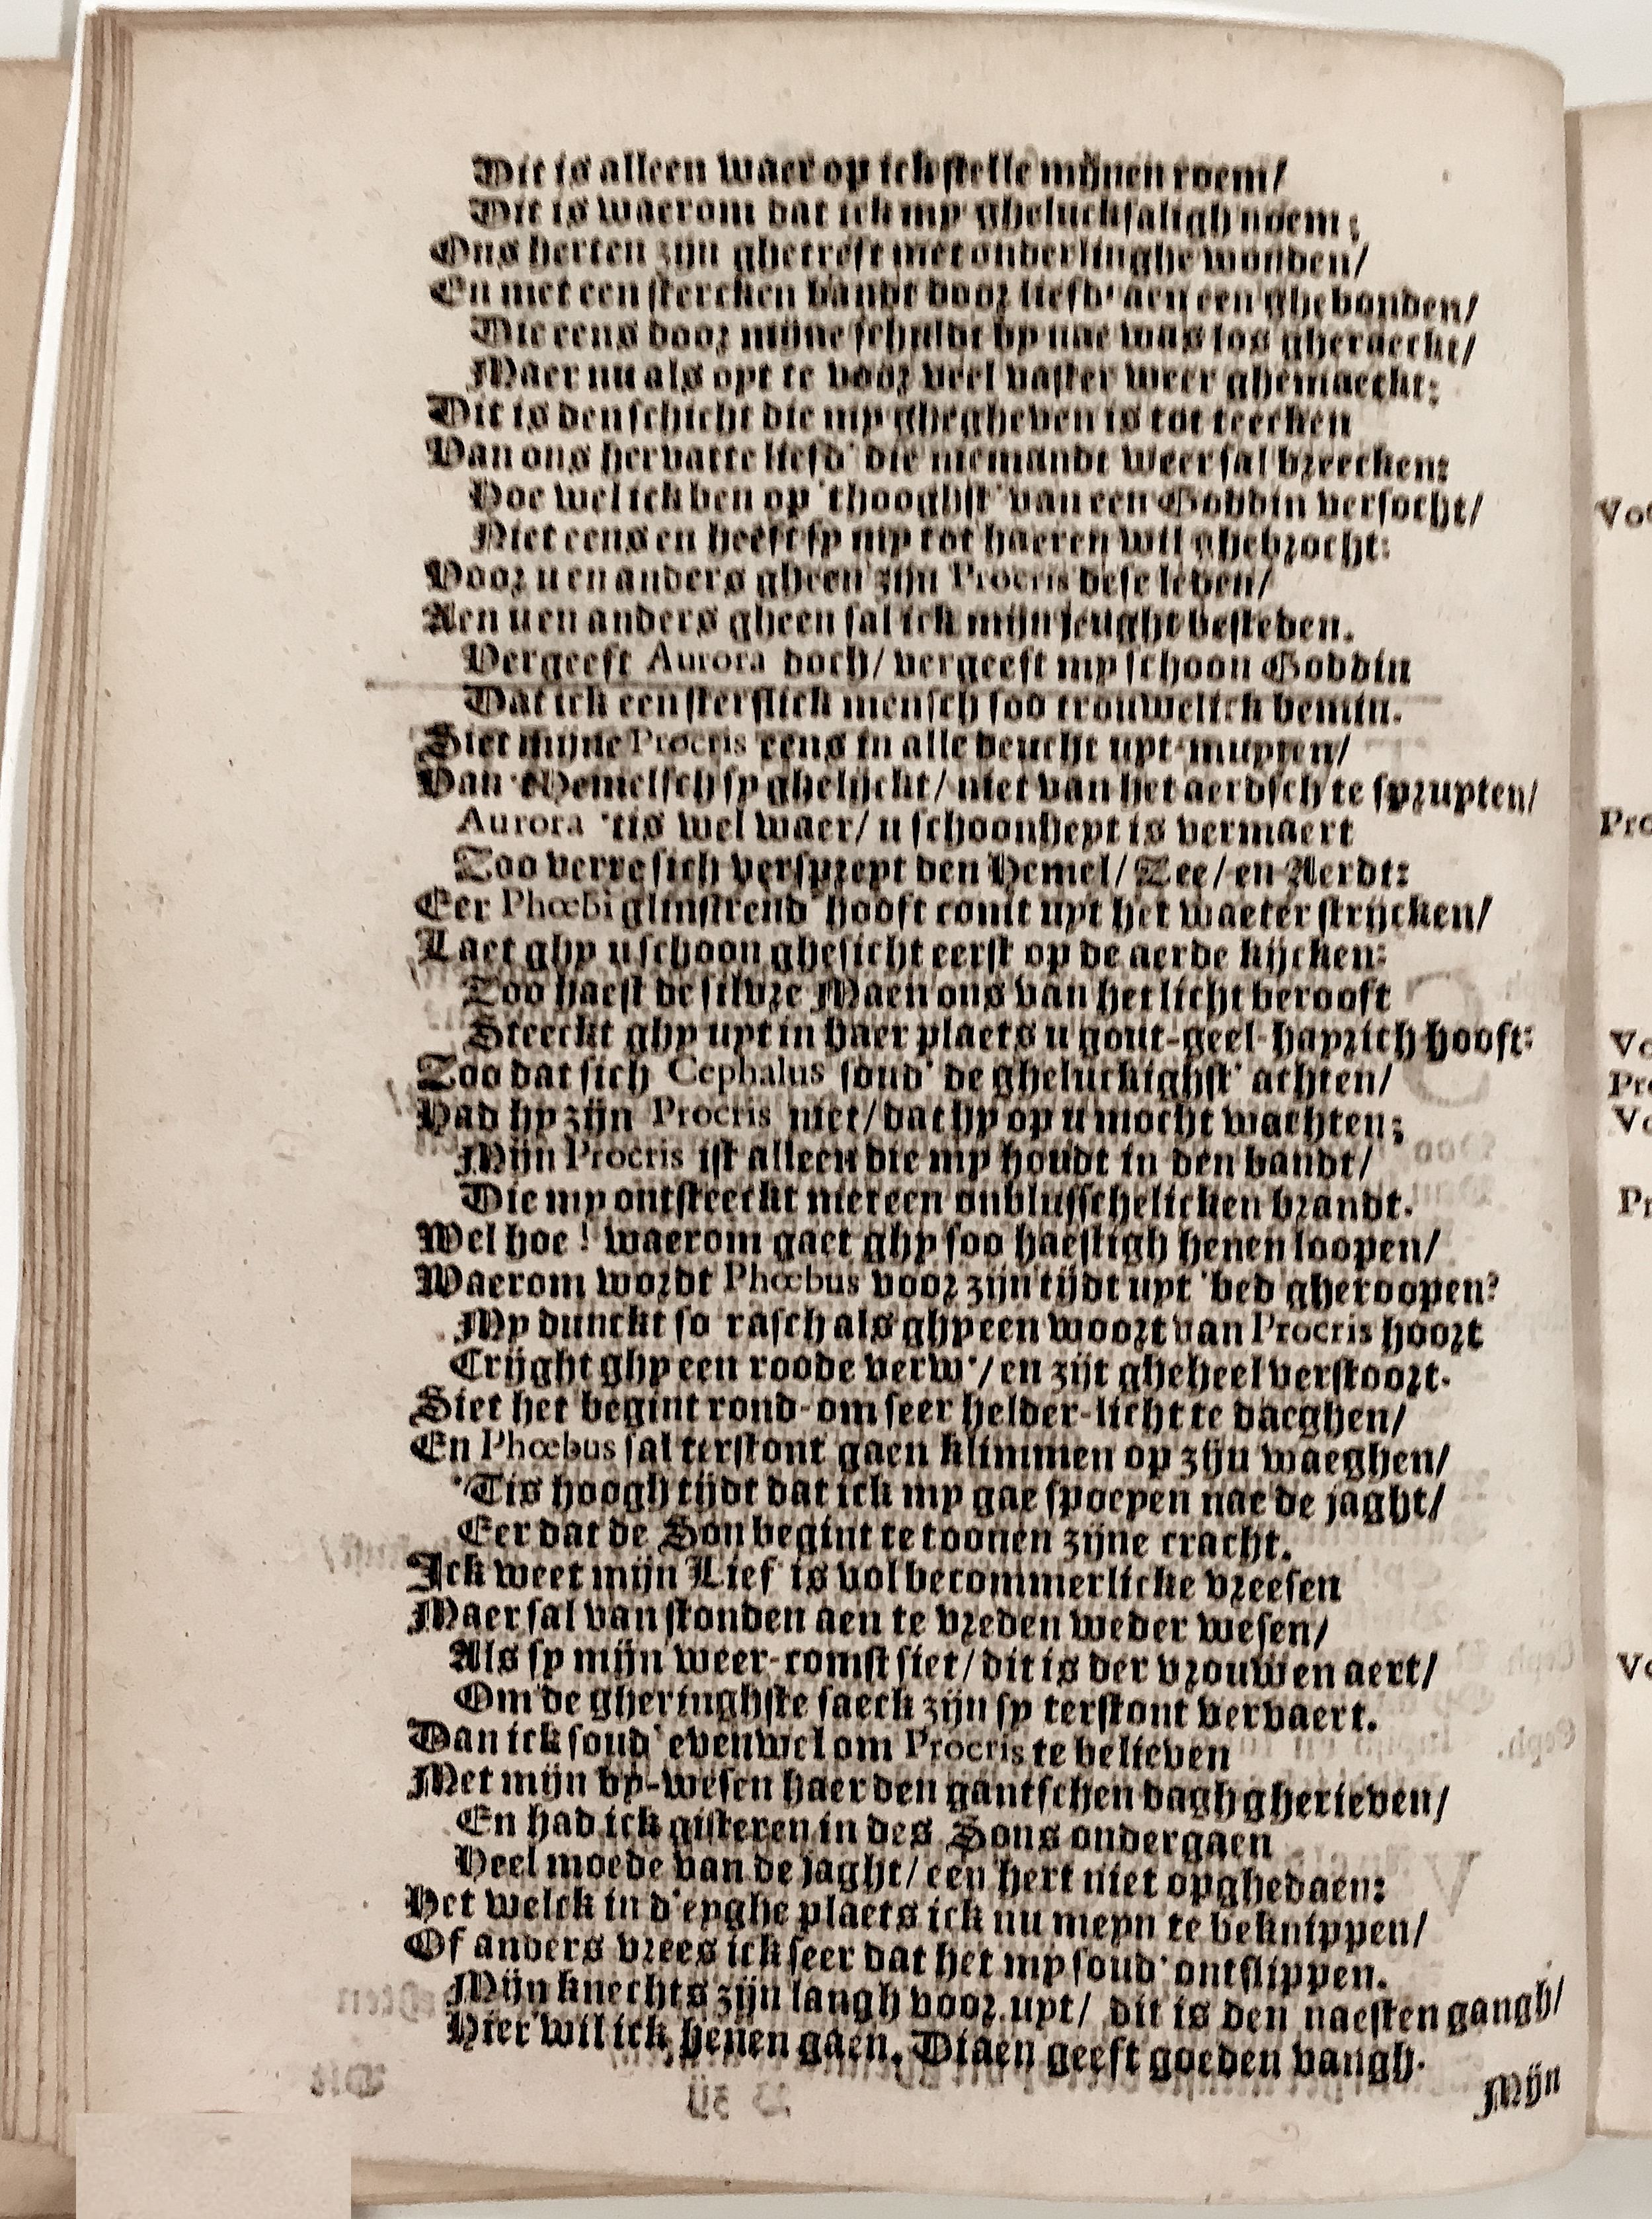 Dit is alleen waer op ick stelle mijnen roem/
Dit is waerom dat ick my ghelucksaligh noem;
Ons herten zijn ghetreft met onderlinghe wonden/
En met een stercken bandt door liefd' aen een ghebonden/
Die eens door mijne schuldt by nae was los gheraeckt/
Maer nu als oyt te voor veel vaster weer ghemaeckt:
Dit is den schicht die my ghegheven is tot teecken
Van ons hervatte liefd' die niemandt weer sal breecken:
Hoe wel ick ben op 'thooghst' van een Goddin versocht/
Niet eens en heeft sy my tot haeren wil ghebrocht:
Voor u en anders gheen zijn Procris dese leden/
Aen u en anders gheen sal ick mijn jeught besteden.
Vergeeft Aurora doch/ vergeeft my schoon Goddin
Dat ick een sterflick mensch soo trouwelick bemin.
Siet mijne Procris eens in alle deucht uyt-muyten/
Van 'tHemelsch sy ghelijckt/ niet van het aerdsch te spruyten/
Aurora 'tis wel waer/ u schoonheyt is vermaert
Soo verre sich verspreyt den Hemel/ Zee/ en Aerdt:
Eer Phœbi glinstrend' hooft comt uyt het waeter strijcken/
Laet ghy u schoon ghesicht eerst op de aerde kijcken:
Soo haest de silvre Maen ons van het licht berooft
Steeckt ghy uyt in haer plaets u gout-geel-hayrich hooft:
Soo dat sich Cephalus soud' de gheluckighst' achten/
Had hy zijn Procris niet/ dat hy op u mocht wachten;
Mijn Procris ist alleen die my houdt in den bandt/
Die my ontsteeckt met een onblusschelicken brandt.
Wel hoe! waerom gaet ghy soo haestigh henen loopen/
Waerom wordt Phœbus voor zijn tijdt uyt 'bed gheroopen?
My dunckt so rasch als ghy een woort van Procris hoort
Crijght ghy een roode verw'/ en zijt gheheel verstoort.
Siet het begint rond-om seer helder-licht te daeghen/
En Phœbus sal terstont gaen klimmen op zijn waeghen/
'Tis hoogh tijdt dat ick my gae spoeyen nae de jaght/
Eer dat de Son begint te toonen zijne cracht.
Ick weet mijn Lief is vol becommerlicke vreesen
Maer sal van stonden aen te vreden weder wesen/
Als sy mijn weer-comst siet/ dit is der vrouwen aert/
Om de gheringhste saeck zijn sy terstont vervaert.
Dan ick soud' evenwel om Procris te believen
Met mijn by-wesen haer den gantschen dagh gherieven/
En had ick gisteren in des Sons ondergaen
Heel moede van de jaght/ een hert niet opghedaen:
Het welck in d'eyghe plaets ick nu meyn te beknippen/
Of anders vrees ick seer dat het my soud' ontslippen.
Mijn knechts zijn langh voor uyt/ dit is den naesten gangh/
Hier wil ick henen gaen. Diaen geeft goeden vangh.
Mijn
Vo
Pro
Vo
Pro
Vo
Pr
Vo